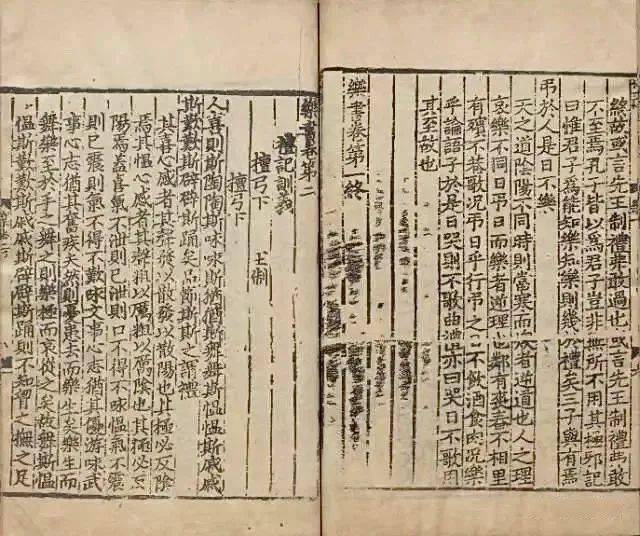 終故或言先王制禮弗敢過也或言先王制禮弗敢
不至焉孔子皆以為君子豈非無所不用其極邪記
曰惟君子為能知樂知樂則幾於禮矣三子與有焉
弔於人是日不樂
天之道陰陽不同時則當寒而者逆道也人之理
哀樂不同日弔而樂者逆理也鄰有喪舂不相里
有殯不巷歌況弔日乎行弔之不飲酒食肉況樂
乎論語子於是日哭則不歌曲禮亦曰哭日不歌用
其至故也
樂書卷第一終
樂書卷第二
禮記訓義
檀弓下
檀弓下 王制
人喜則斯陶陶斯咏咏斯猶猶斯舞舞斯慍慍斯戚戚
斯歎歎斯辟辟斯踊矣品節斯斯之謂禮
其喜心感者其聲發以散發以散陽也其極必反陰
焉其慍心感者其聲粗以厲粗以厲陰也其極必反
陽焉蓋喜氣不泄則已泄則口不得不咏慍氣不震
則已震則氣不得不歎咏文事心志猶其優游咏武
事心志猶其奮疾夫然則憂患去而樂生矣樂生而
舞樂至於手之舞之則樂極而哀從之矣故舞斯慍
慍斯戚戚斯歎歎斯辟辟斯踊則不知胷之撫之足